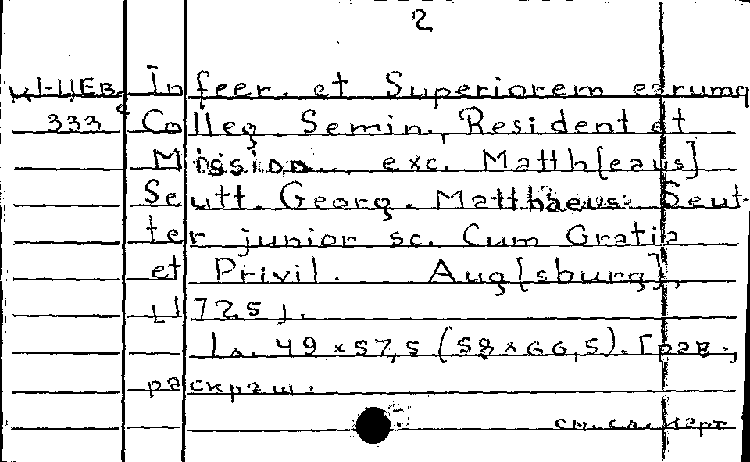 2
In feer. et Superiorem earumq
333 Colleg. Semin., Resident et
Mission. exc. Matth[eaus]
Seutt. Georg. Matthaeus Seut-
ter junior sc. Cum Gratia
et Privil. Aug[sburg],
[1725].
1 л. 49 x 57,5 (58 x 66,5). Грав.,
раскраш.
см. сл. карт